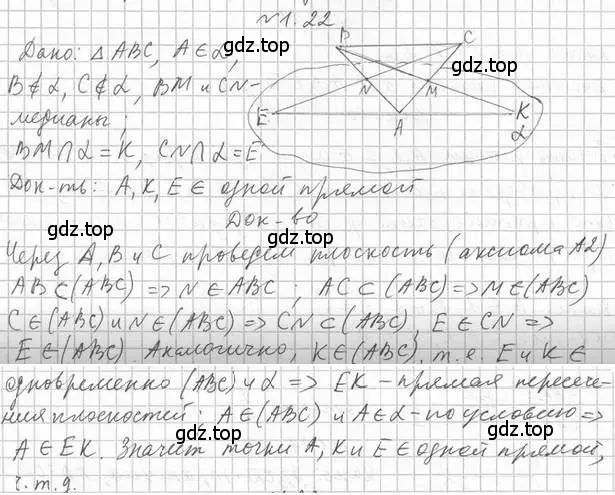 №1.22
Дано: △ABC, A∈α,
B∉α, C∉α, BM и CN-
медианы;
BM∩α=K, CN∩α=E
Док-ть: A, K, E ∈ одной прямой
B
C
N
M
E
A
K
α
Док-во
Через A, B и C проведем плоскость (аксиома A2)
AB⊂(ABC) => N∈ABC; AC⊂(ABC)=>M∈(ABC)
C∈(ABC) и N∈(ABC) => CN⊂(ABC), E∈CN =>
E∈(ABC). Аналогично, K∈(ABC). т.е. E и K ∈
одновременно (ABC) и α => EK - прямая пересече-
ния плоскостей; A∈(ABC) и A∈α - по условию =>
A∈EK. Значит точки A, K и E∈одной прямой,
ч.т.д.
gdz.top
gdz.top
gdz.top
gdz.top
gdz.top
gdz.top
gdz.top
gdz.top